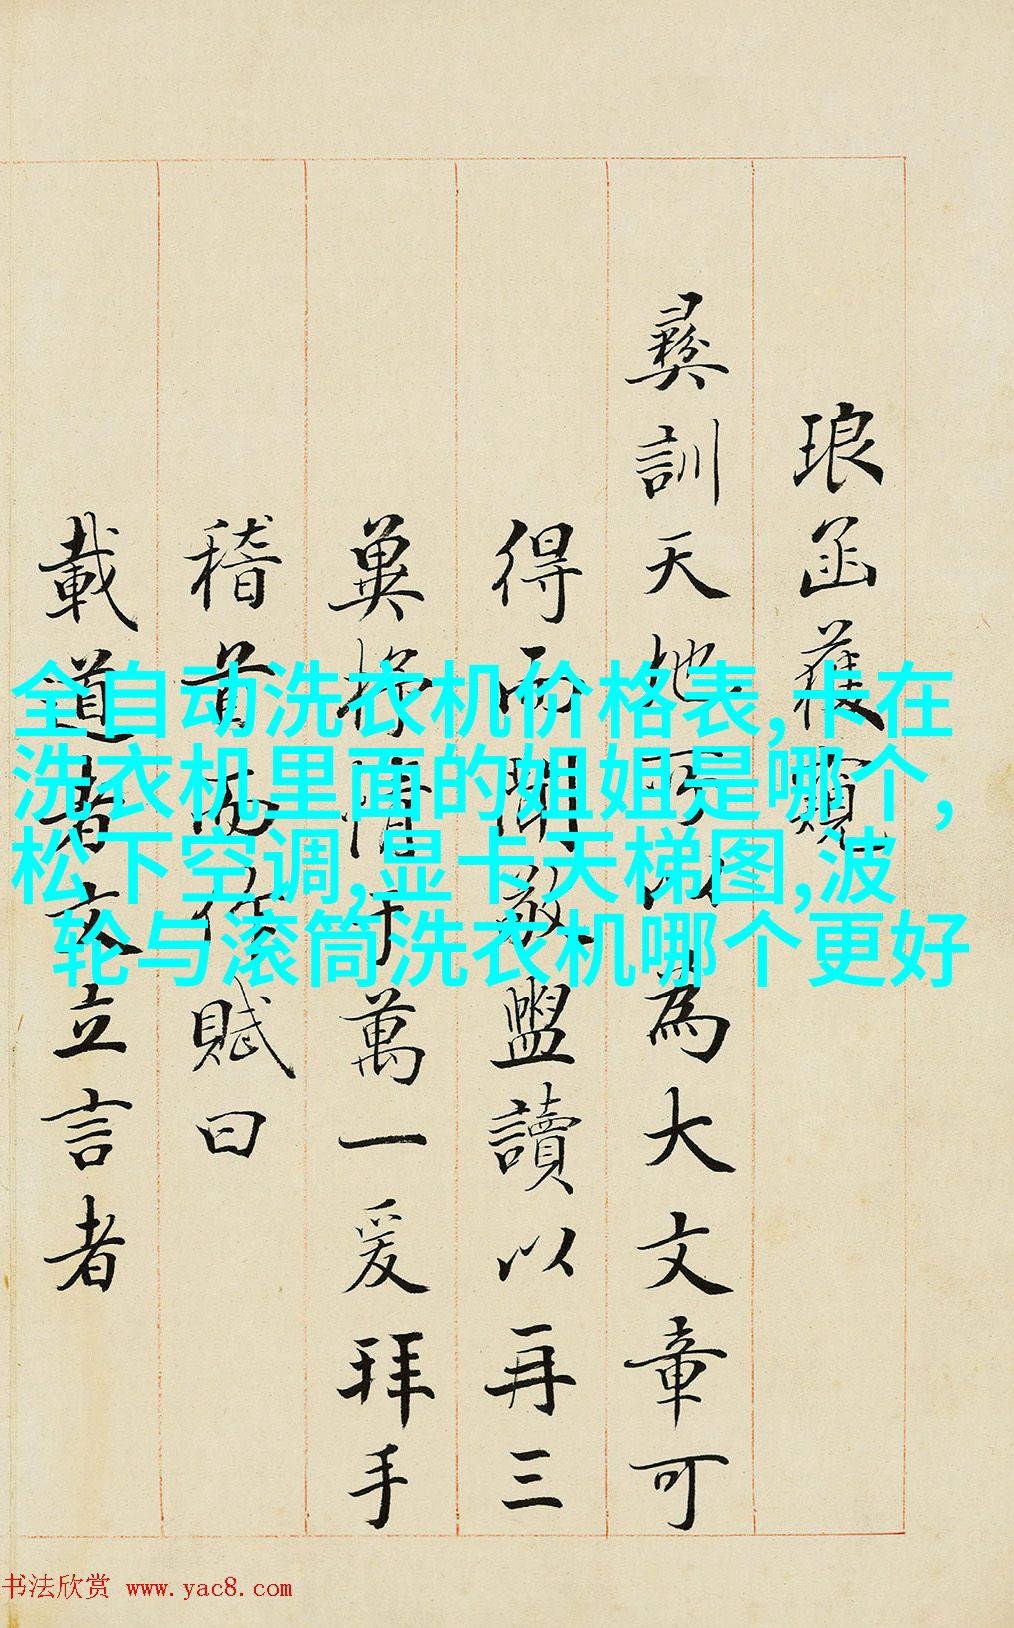 琅函獲窺
彝訓天地可以為大文章可
得而聞敬盥讀以再三
冀抒情于萬一爰拜手
稽首作賦曰
載道者文立言者
全自动洗衣机价格表,卡在
洗衣机里面的姐姐是哪个,
松下空调,显卡天梯图,波
轮与滚筒洗衣机哪个更好
书法欣赏 www.yac8.com